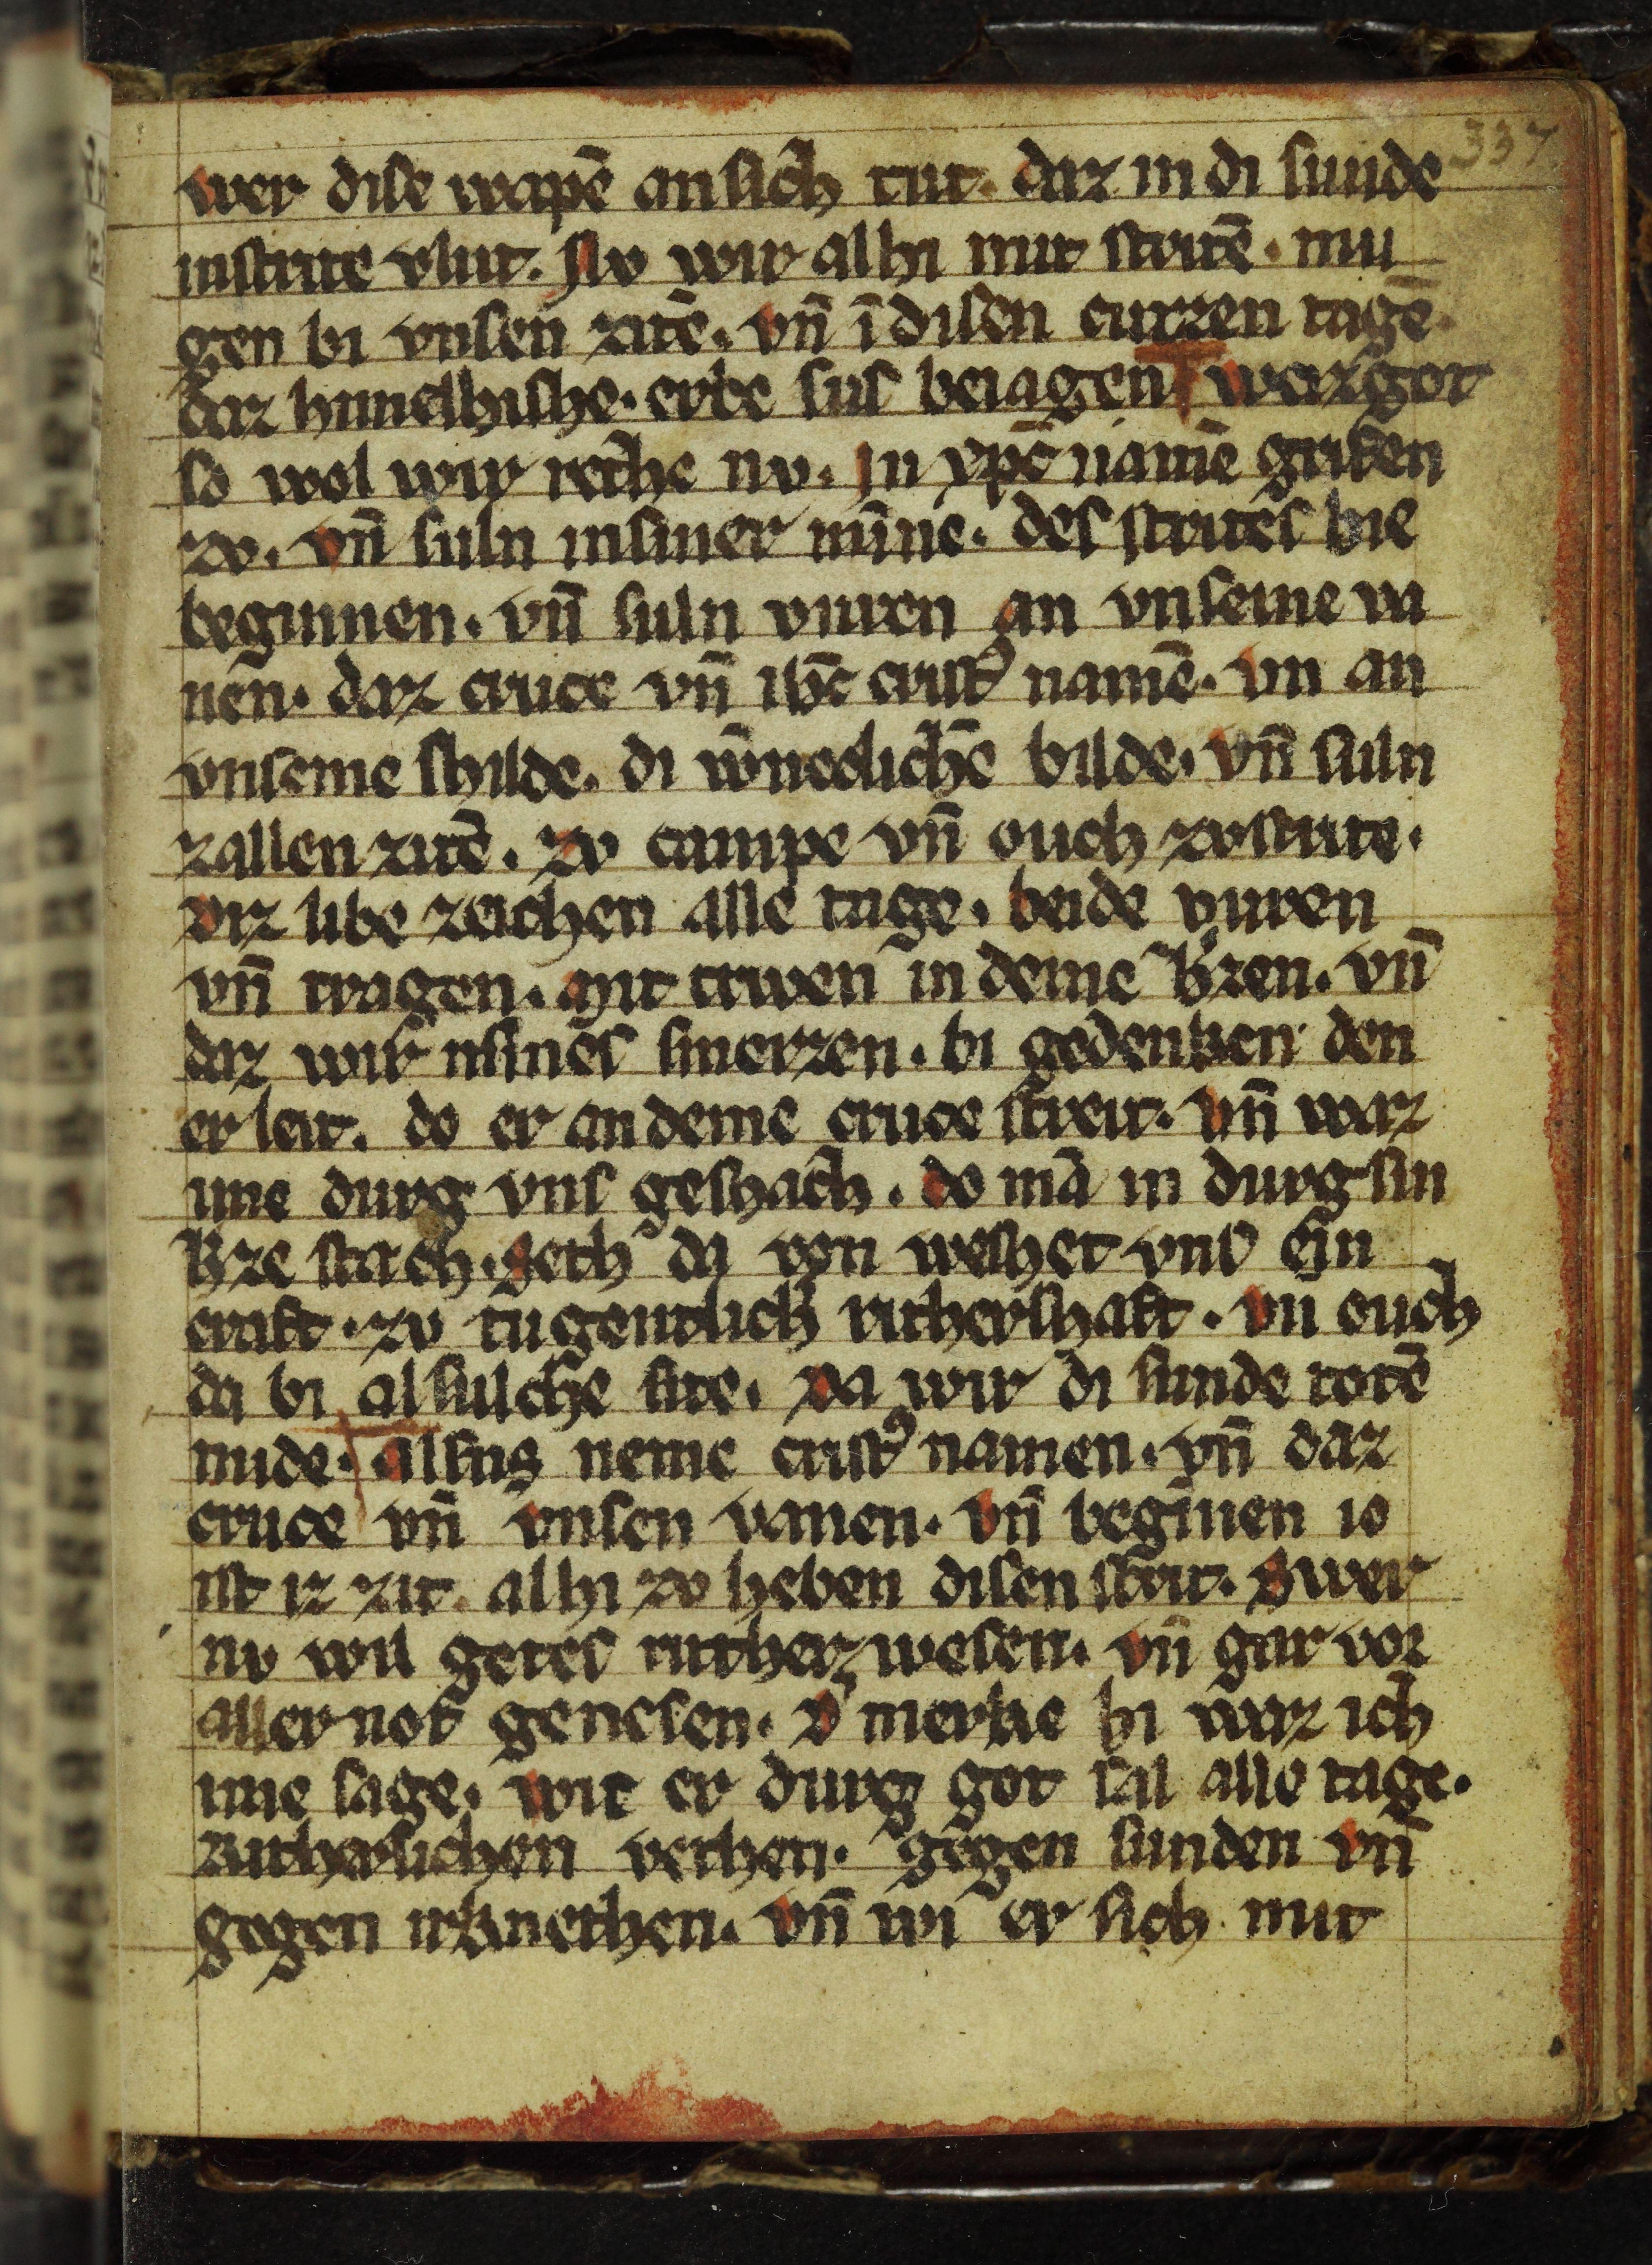 337
wer dise wapē an sich tut. daz in di sunde
in strite vlut. Nv wir alhi mit stritē. mu
gen bi vnsen zitē. vn̄ ī disen curzen tagē.
daz himelhishe. erbe sus beiagen weizgot
so wol wir rechē nv. In xp̄c namē grifen
zv. vn̄ suln in siner mīne. des strites hie
beginnen. vn̄ suln vuren an vnseme va
nen. daz cruce vn̄ ih̄c crist᾿ namē. vn an
vnseme shilde. di w̄neclichē bilde. vn̄ suln
zallen zitē. zv campe vn̄ ouch zvstrite.
diz libe zeichen alle tage. beide vuren
vn̄ tragen. mit trwen in deme h᾿zen. vn̄
daz wir sines smerzen. bi gedenken den
er leit. do er an deme cruce streit. vn̄ waz
ime durg vns geshach. do mā in durg sin
h᾿ze stach. seth da von weshet vns ein
craft. zv tugentlich᾿ rithershaft. vn ouch
da bi alsulche site. da wir di sunde totē
mide. alsus neme crist᾿ namen. vn̄ daz
cruce vn̄ vnsen vanen. vn̄ begīnen io
ist iz zit. alhi zv heben disen strit. Swer
nv wil gotes rither wesen. vn̄ gar vor
aller not genesen. d᾿ merke hi waz ich
ime sage. wie er durg got sal alle tage.
Ritherlichen vethen. gegen sunden vn̄
gegen ir knethen. vn̄ wi er sich mit